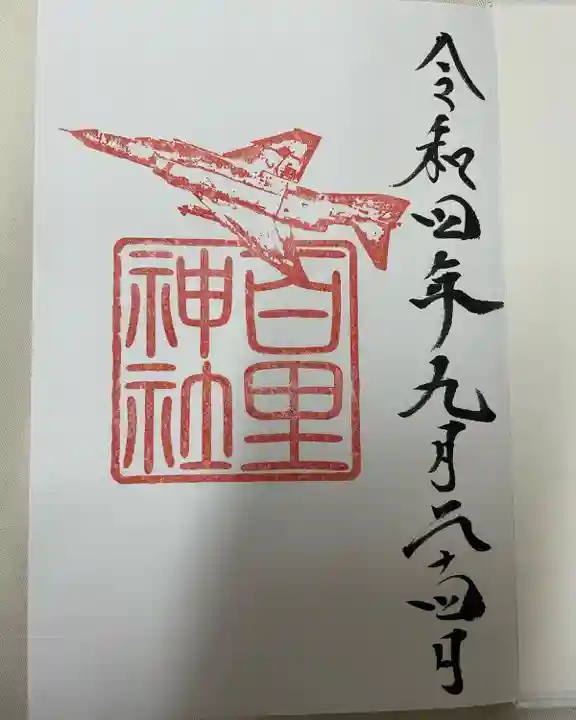 令和四年九月二十四日
百里
神社